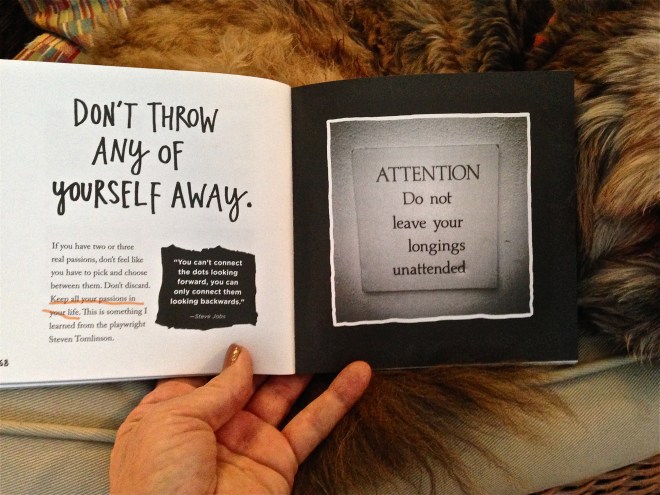 DON'T THROW
ANY OF
YOURSELF AWAY.
If you have two or three
real passions, don't feel like
you have to pick and choose
between them. Don't discard.
Keep all your passions in
your life. This is something I
learned from the playwright
Steven Tomlinson.
"You can't connect
the dots looking
forward, you can
only connect them
looking backwards."
—Steve Jobs
68
ATTENTION
Do not
leave your
longings
unattended